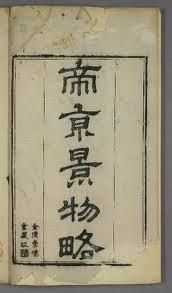 帝京景物略
金陵崇㙯
堂藏板